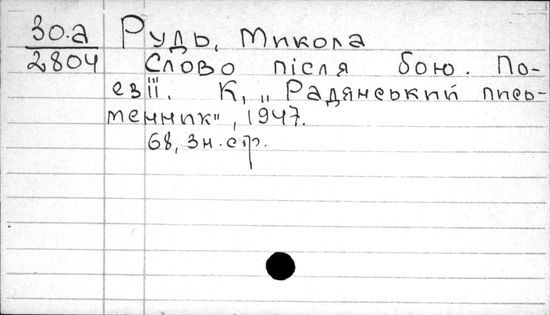 30.а Рудь, Микола
2804 Слово після бою. По-
езії. К, „Радянський пись-
менник", 1947.
68, 3 н. стр.